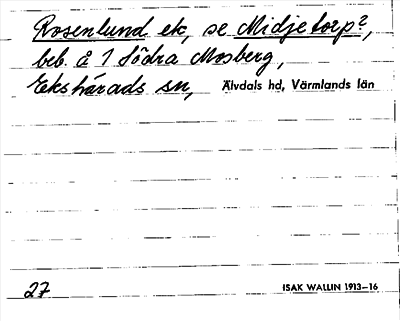 Rosenlund ek, se Midjetorp?,
beb. å 1 Södra Mosberg,
Ekshärads sn, Älvdals hd, Värmlands län
27 ISAK WALLIN 1913–16